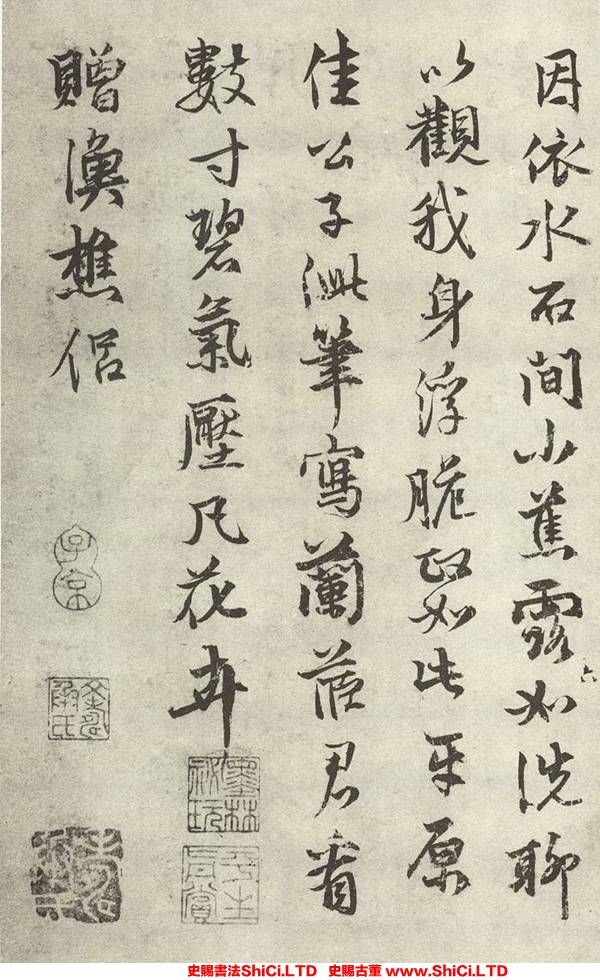 因依水石間小蕉露如洗聊
以觀我身浮脆政如此平原
佳公子泚筆寫蘭葹君看
數寸碧氣壓凡花卉
贈漁樵侶
子京
墨林秘玩
史賜書法ShiCi.LTD 史賜古董 www.ShiCi.LTD